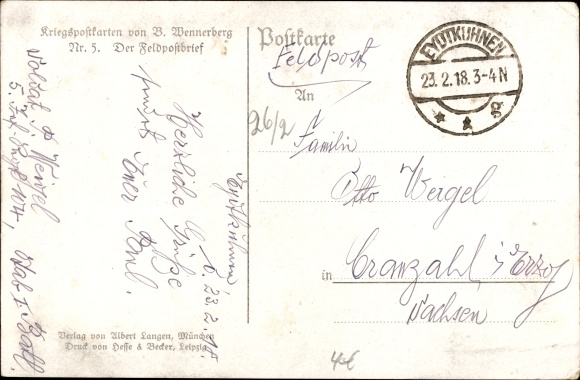 Kriegspostkarten von B. Wennerberg
Nr. 5. Der Feldpostbrief
Postkarte
Feldpost
An
EYDTKUHNEN
23.2.18.3-4N
* * g
26/2
Familie
Otto Weigel
in Cranzahl i/Erzg
Sachsen
Eydtkuhnen
d. 23.2.
Herzliche Grüße
Euer Paul.
Soldat P. Weigel
5. Inf. Rgt. 104, Stab I. Batl
Verlag von Albert Langen, München
Druck von Hesse & Becker, Leipzig
4€